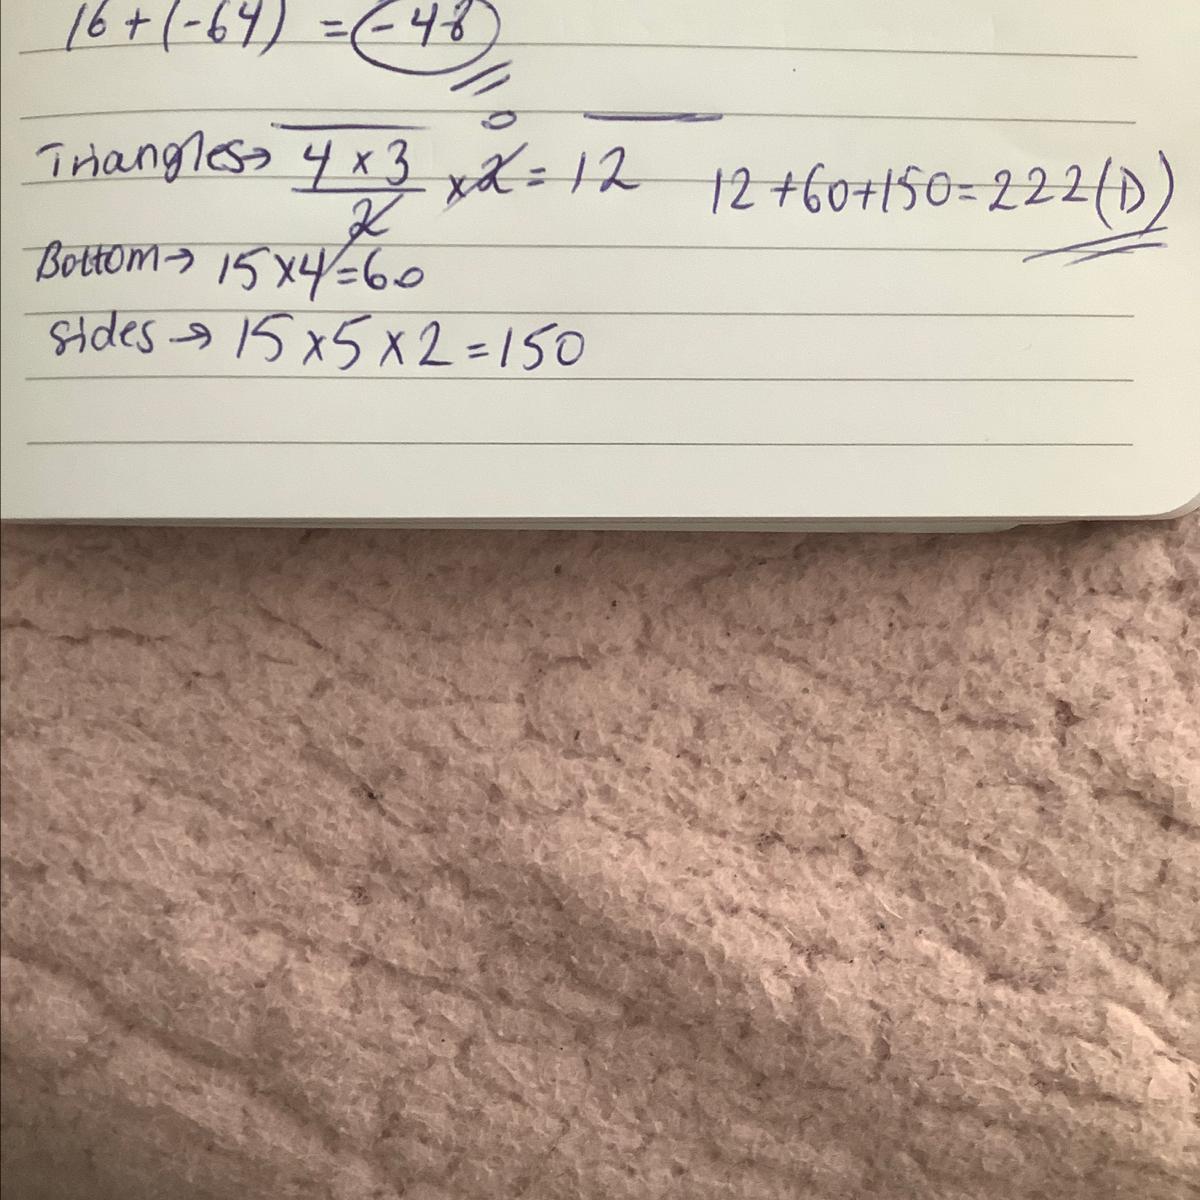 16 + (-64) = -48
Triangles → 4 x 3 / 2 x 2 = 12 12 + 60 + 150 = 222 (D)
Bottom → 15 x 4 = 60
sides → 15 x 5 x 2 = 150